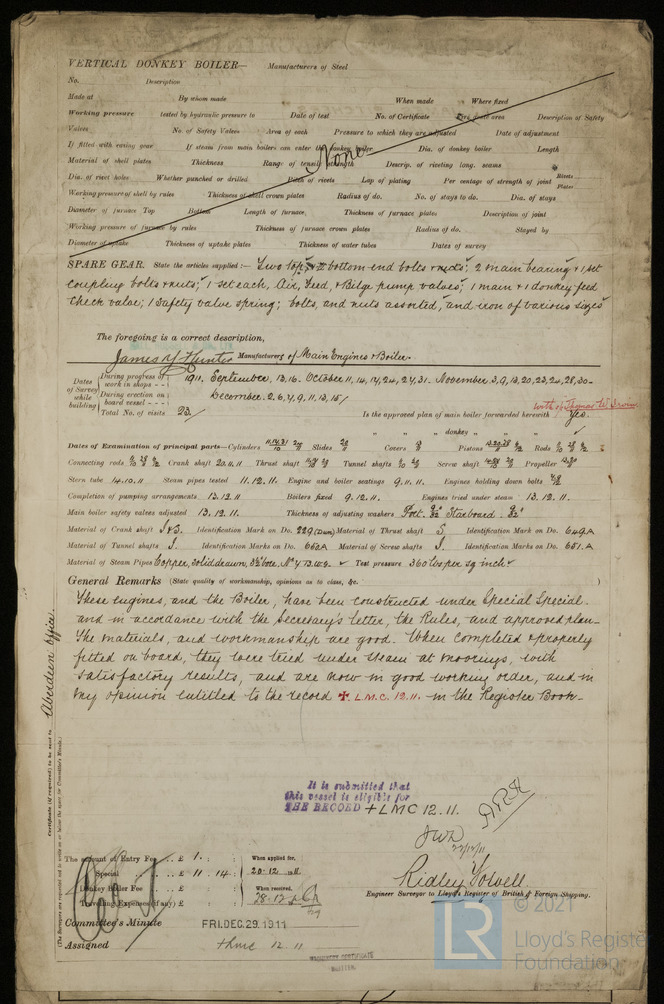 VERTICAL DONKEY BOILER— Manufacturers of Steel
No. Description
Made at By whom made When made Where fixed
Working pressure tested by hydraulic pressure to Date of test No. of Certificate Fire grate area Description of Safety
Valves No. of Safety Valves Area of each Pressure to which they are adjusted Date of adjustment
If fitted with easing gear If steam from main boilers can enter the donkey boiler Dia. of donkey boiler Length
Material of shell plates Thickness Range of tensile strength Descrip. of riveting long. seams
None
Dia. of rivet holes Whether punched or drilled Pitch of rivets Lap of plating Per centage of strength of joint Rivets Plates
Working pressure of shell by rules Thickness of shell crown plates Radius of do. No. of stays to do. Dia. of stays
Diameter of furnace Top Bottom Length of furnace Thickness of furnace plates Description of joint
Working pressure of furnace by rules Thickness of furnace crown plates Radius of do. Stayed by
Diameter of uptake Thickness of uptake plates Thickness of water tubes Dates of survey
SPARE GEAR. State the articles supplied:— Two top & bottom end bolts & nuts; 2 main bearing & 1 set
coupling bolts & nuts; 1 set each, Air, Feed, & Bilge pump valves; 1 main & 1 donkey feed
check valve; 1 safety valve spring; bolts, and nuts assorted, and iron of various sizes
The foregoing is a correct description,
James Y Hunter Manufacturers of Main Engines & Boiler.
Dates of Survey while building
During progress of work in shops - - 1911. September, 13.16. October 11, 14, 17, 24, 27, 31. November. 3, 9, 13, 20, 23, 24, 28, 30.
During erection on board vessel - - - December. 2. 6, 7, 9, 11, 13, 15/
Total No. of visits 23/ Is the approved plan of main boiler forwarded herewith Yes.
" " " donkey " " "
Dates of Examination of principal parts—Cylinders Slides Covers Pistons Rods
Connecting rods Crank shaft 20.11.11 Thrust shaft Tunnel shafts Screw shaft Propeller
Stern tube 14.10.11 Steam pipes tested 11.12.11. Engine and boiler seatings 9.11.11. Engines holding down bolts
Completion of pumping arrangements 13.12.11 Boilers fixed 9.12.11. Engines tried under steam 13.12.11.
Main boiler safety valves adjusted 13.12.11. Thickness of adjusting washers Port. Starboard.
Material of Crank shaft I & S. Identification Mark on Do. 229 Material of Thrust shaft S Identification Mark on Do. 649A
Material of Tunnel shafts S. Identification Marks on Do. 652A Material of Screw shafts S. Identification Marks on Do. 651.A
Material of Steam Pipes Copper, solid drawn, Test pressure 360 lbs per sq inch
General Remarks (State quality of workmanship, opinions as to class, &c.
These engines, and the Boiler, have been constructed under Special Special.
and in accordance with the Secretary's letter, the Rules, and approved plan—
The materials, and workmanship are good. When completed & properly
fitted on board, they were tried under steam at moorings, with
satisfactory results, and are now in good working order, and in
my opinion entitled to the record ✠ L.M.C. 12.11. in the Register Book—
Aberdeen Office.
Certificate (if required) to be sent to
(The Surveyors are requested not to write on or below the space for Committee's Minute.)
It is submitted that
this vessel is eligible for
THE RECORD + LMC 12.11.
The amount of Entry Fee . . £ 1. : : When applied for,
Special . . £ 11 : 14 : 20.12.1911.
Donkey Boiler Fee . . £ : : When received,
Travelling Expenses (if any) £ : :
Ridley Yowell
Engineer Surveyor to Lloyd's Register of British & Foreign Shipping.
Committee's Minute FRI. DEC. 29. 1911
Assigned + LMC 12.11
© 2021
LR
Lloyd's Register
Foundation